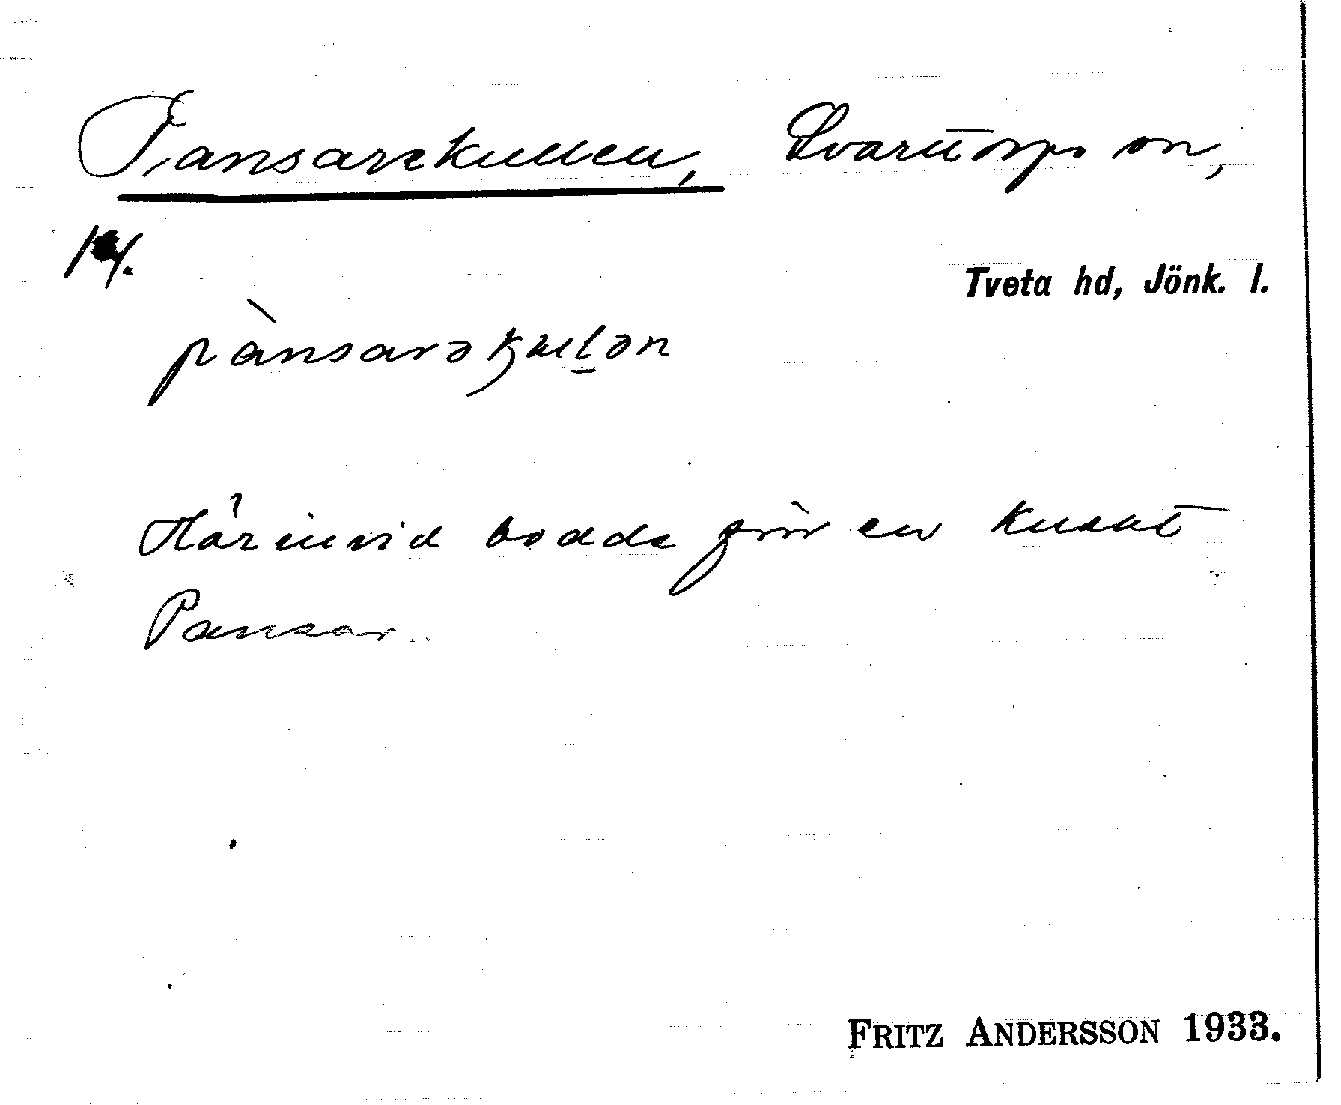 Pansarekullen, Svarttorps sn,
Tveta hd, Jönk. l.
pànsarəkulən
Härinvid bodde förr en knekt
Pansar.
FRITZ ANDERSSON 1933.